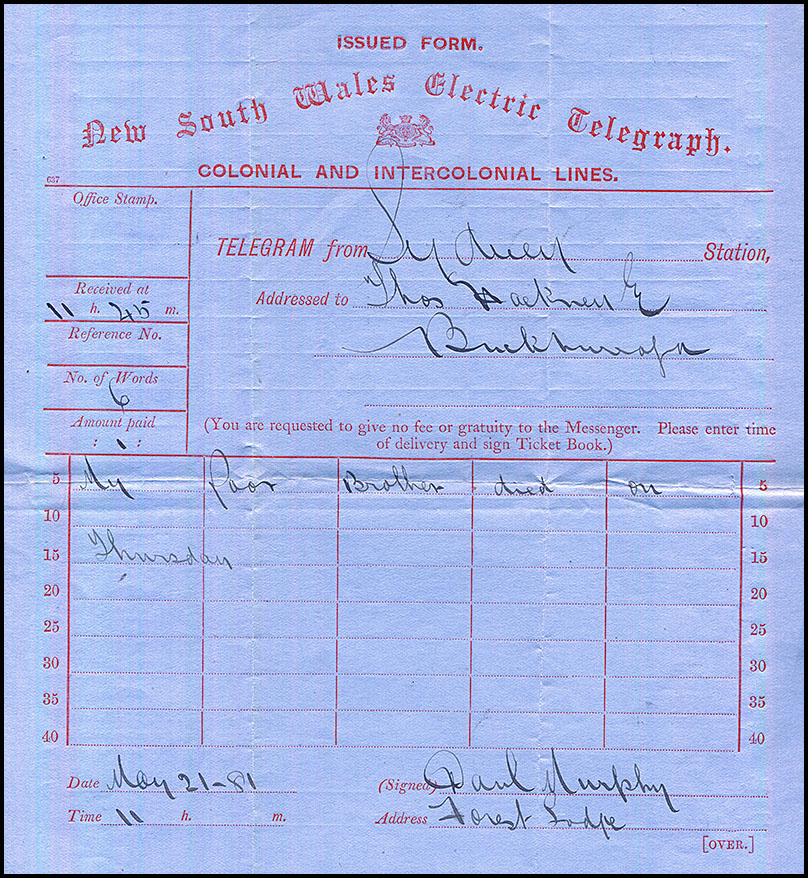 ISSUED FORM.
New South Wales Electric Telegraph.
COLONIAL AND INTERCOLONIAL LINES.
637
Office Stamp.
TELEGRAM from Sydney Station,
Received at
11 h. 45 m.
Addressed to Thos Hackney
Reference No.
No. of Words
6
Amount paid
: 1 :
(You are requested to give no fee or gratuity to the Messenger. Please enter time
of delivery and sign Ticket Book.)
5 My Poor Brother died on 5
10 10
15 Thursday 15
20 20
25 25
30 30
35 35
40 40
Date May 21-81 (Signed) Paul Murphy
Time 11 h. m. Address Forest Lodge
[OVER.]